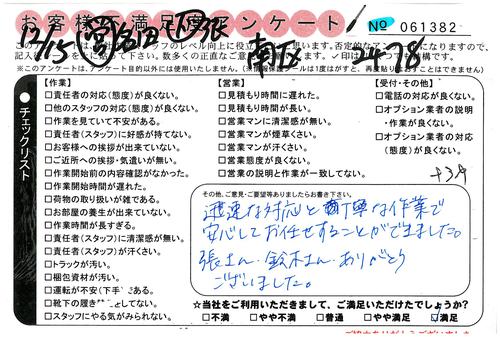 お客様不満足度アンケート
No 061382
12/15
南区
2478
【作業】
□責任者の対応(態度)が良くない。
□他のスタッフの対応(態度)が良くない。
□作業を見ていて不安がある。
□責任者(スタッフ)に好感が持てない。
□お客様への挨拶が出来ていない。
□ご近所への挨拶・気遣いが無い。
□作業開始前の内容確認がなかった。
□作業開始時間が遅れた。
□荷物の取り扱いが雑である。
□お部屋の養生が出来ていない。
□作業時間が長すぎる。
□責任者(スタッフ)に清潔感が無い。
□責任者(スタッフ)が汗くさい。
□トラックが汚い。
□梱包資材が汚い。
□運転が不安(下手)である。
□靴下の履き としてない。
□スタッフにやる気がみられない。
【営業】
□見積もり時間に遅れた。
□見積もり時間が長い。
□営業マンに清潔感が無い。
□営業マンが煙草くさい。
□営業マンが汗くさい。
□営業態度が良くない。
□営業の説明と作業が一致してない。
【受付・その他】
□電話の対応が良くない。
□オプション業者の説明
・作業が良くない。
□オプション業者の対応
(態度)が良くない。
チェックリスト
その他、ご意見・ご要望等ありましたらお書き下さい。
迅速な対応と丁寧な作業で
安心してお任せすることができました。
張さん、鈴木さん、ありがとう
ございました。
☆当社をご利用いただきまして、ご満足いただけたでしょうか?
□不満 □やや不満 □普通 □やや満足 ☑満足